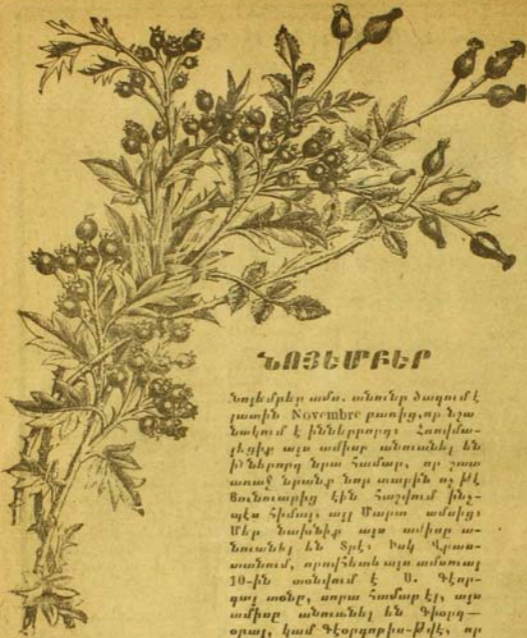 ՆՈՅԵՄԲԵՐ
Նոյեմբեր ամս. անունը ծագում է
լատին Novembre բառից, որ նշա
նակում է իններրորդ։ Հռովմա-
յեցիք այս ամիսը անուանել են
իններորդ նրա համար, որ շատ
առաջ նրանք նոր տարին ոչ թէ
Յունուարից էին հաշվում ինչ-
պէս հիմայ, այլ Մարտ ամսից։
Մեր նախնիք այս ամիսը ա-
նուանել են Տրէ։ Իսկ Վրաս-
տանում, որովհետև այս ամսուայ
10-ին տօնվում է Ս. Գէոր-
գայ տօնը, սորա համար էլ, այս
ամիսը անուանել են Գիորգ—
օբայ, կամ Գէորգոբիս-Թվէ, որ